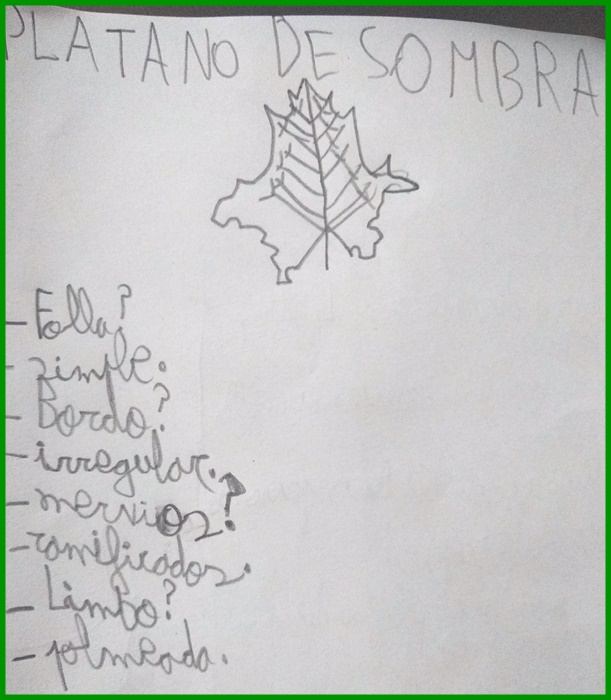 PLATANO DE SOMBRA
- Folla?
- simple.
- Bordo?
- irregular.
- nervios?
- ramificados.
- Limbo?
- palmeada.